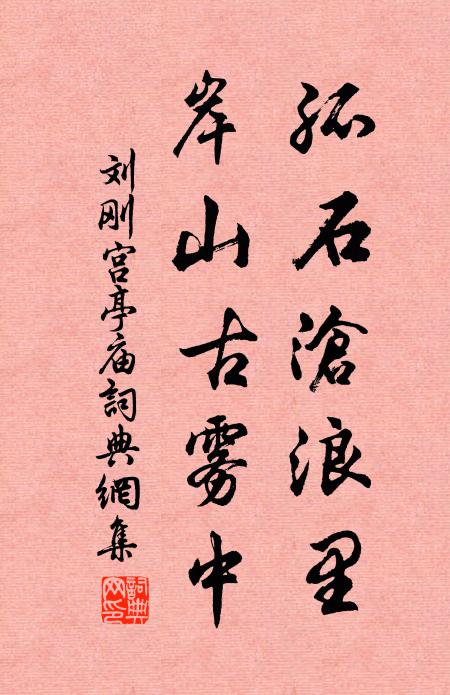 孤石滄浪里
岸山古雾中
刘刚宫亭庙詞典網集
詞典网印